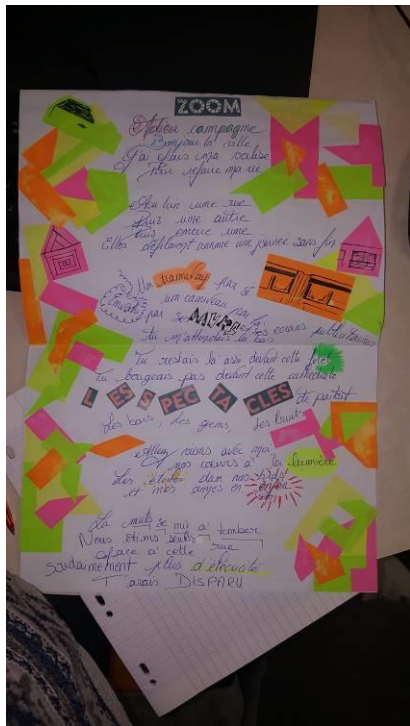 ZOOM
Adieu campagne
Bonjour la ville
J'ai fais ma valise
Pour refaire ma vie
Au loin une rue
Puis une autre
Puis encore une
Elles défilaient comme une journée sans fin
Un tramway par si
un camion par la
Envahi par ses MURS ses ecrans publicitaires
tu m'attendais la bas
Tu restais là assi devant cette foret
Tu bougeais pas devant cette cathédrale
LES SPECTACLES de partout
Les bars, les gens, les bruits
Allez viens avec moi
nos coeurs à la lumière
Les étoiles dan nos
et mes anjes en enfer
La nuits se mit a tomber
Nous étions seuls
face à cette rue
soudainement plus d'élécricité
T'avais DISPARU